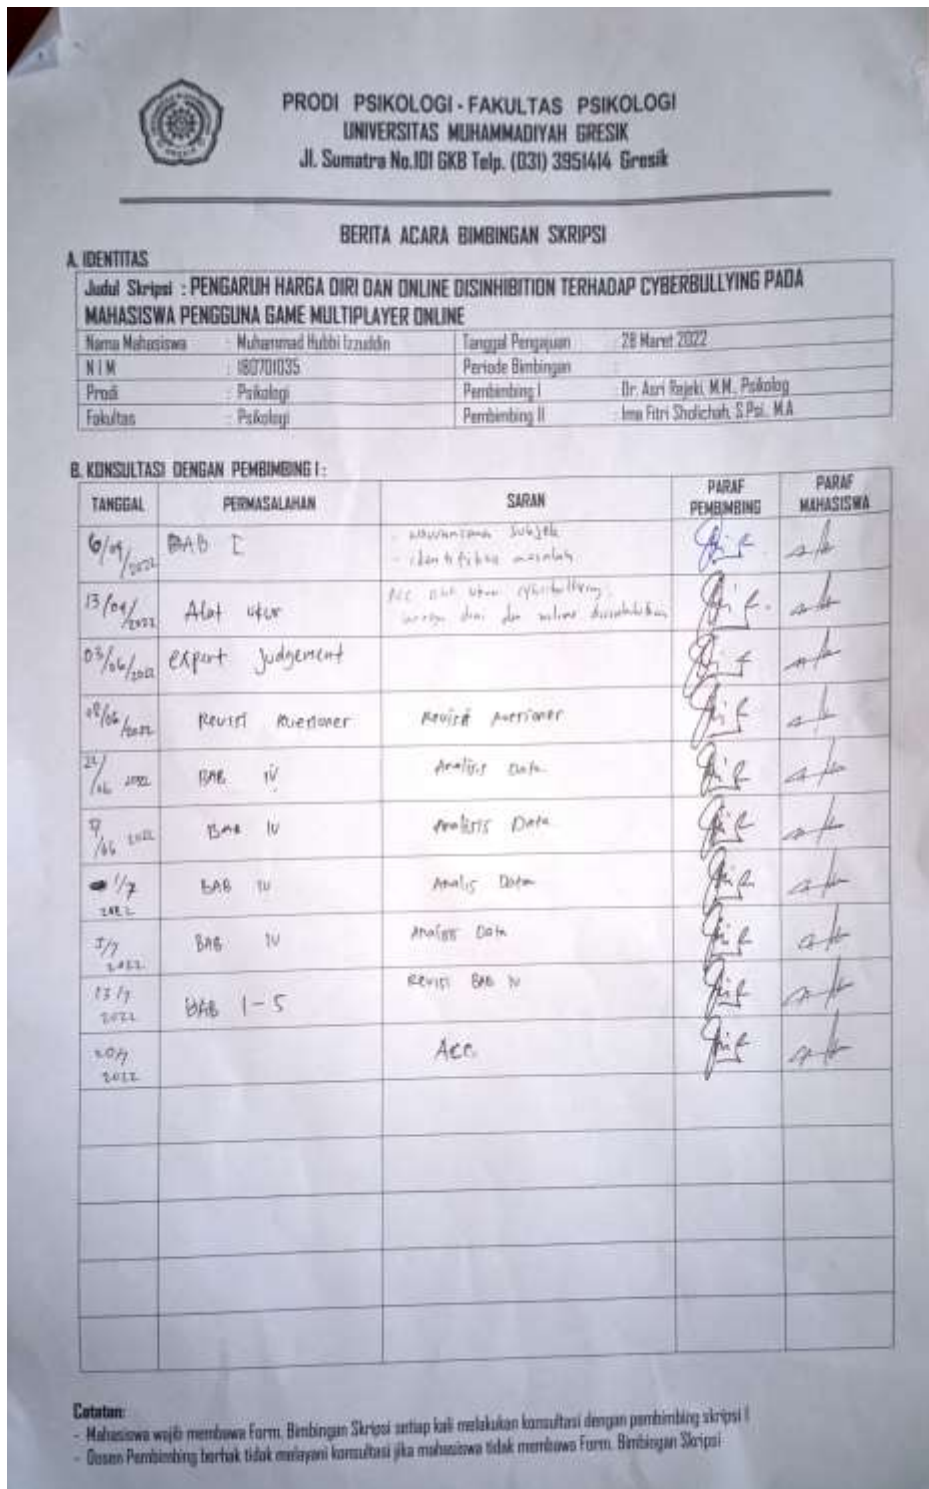 PRODI PSIKOLOGI - FAKULTAS PSIKOLOGI
UNIVERSITAS MUHAMMADIYAH GRESIK
Jl. Sumatra No.101 GKB Telp. (031) 3951414 Gresik
BERITA ACARA BIMBINGAN SKRIPSI
A. IDENTITAS
Judul Skripsi : PENGARUH HARGA DIRI DAN ONLINE DISINHIBITION TERHADAP CYBERBULLYING PADA
MAHASISWA PENGGUNA GAME MULTIPLAYER ONLINE
Nama Mahasiswa : Muhammad Hubbi Izzuddin Tanggal Pengajuan : 28 Maret 2022
N I M : 180701035 Periode Bimbingan :
Prodi : Psikologi Pembimbing I : Dr. Asri Rejeki, M.M., Psikolog
Fakultas : Psikologi Pembimbing II : Ima Fitri Sholichah, S.Psi., M.A
B. KONSULTASI DENGAN PEMBIMBING I :
TANGGAL PERMASALAHAN SARAN PARAF PEMBIMBING PARAF MAHASISWA
6/04/2022 BAB I - wawancara subjek
- identifikasi masalah
13/04/2022 Alat ukur Acc alat ukur cyberbullying,
harga diri dan online disinhibition
03/06/2022 expert judgement
08/06/2022 Revisi kuesioner Revisi kuesioner
/06 2022 BAB IV Analisis Data
/06 2022 BAB IV Analisis Data
1/7 2022 BAB IV Analis Data
5/7 2022 BAB IV Analisis Data
13/7 2022 BAB 1-5 Revisi BAB IV
20/7 2022 Acc.
Catatan:
- Mahasiswa wajib membawa Form. Bimbingan Skripsi setiap kali melakukan konsultasi dengan pembimbing skripsi I
- Dosen Pembimbing berhak tidak melayani konsultasi jika mahasiswa tidak membawa Form. Bimbingan Skripsi